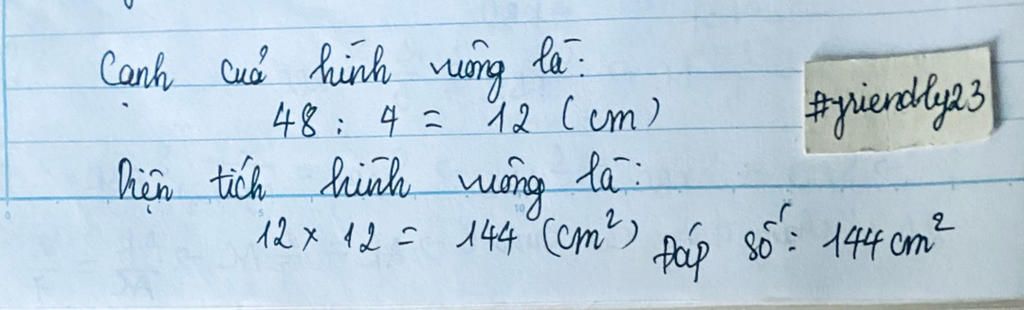 Cạnh của hình vuông là:
48 : 4 = 12 (cm)
#friendly23
Diện tích hình vuông là:
12 x 12 = 144 (cm²) Đáp số: 144 cm²